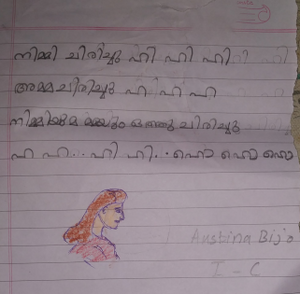 നിമ്മി ചിരിച്ചു ഹി ഹി ഹി
അമ്മ ചിരിച്ചു ഹ ഹ ഹ
നിമ്മിയുമമ്മയും ഒത്തു ചിരിച്ചു
ഹ ഹ... ഹി ഹി.. ഹൊ ഹൊ ഹൊ
Ansbina Bijo
I - C